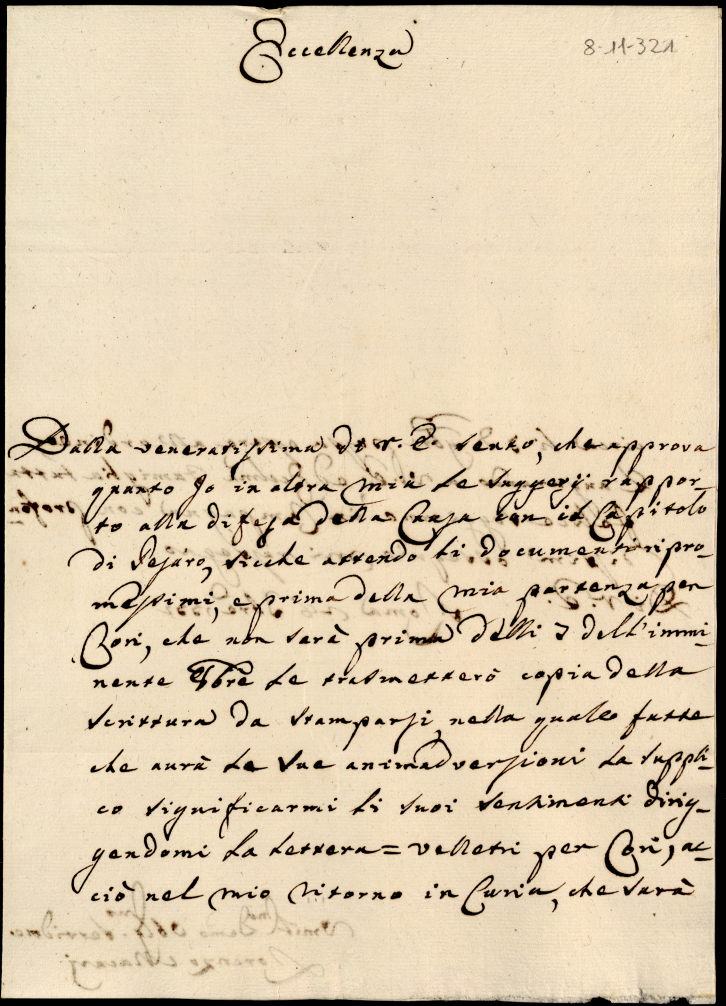 Eccellenza
8-11-321
Dalla veneratissima di V. E. sento, che approva
quanto Jo in altra mia Le suggerij rappor-
to alla difesa della Causa con il Capitolo
di Pesaro, sicche attendo li documenti ripro-
messimi, e prima della mia partenza per
Cori, che non sarà prima delli 7 dell'immi-
nente 9bre Le trasmetterò copia della
scrittura da stamparsi, nella quale fatte
che aurà Le sue animadversioni La suppli-
co significarmi li suoi sentimenti dirig-
gendomi La Lettera = Velletri per Cori, ac-
ciò nel mio ritorno in Curia, che sarà